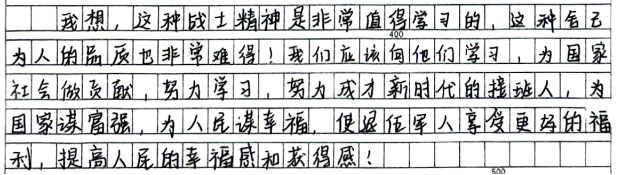 我想，这种战士精神是非常值得学习的，这种舍己
400
为人的品质也非常难得！我们应该向他们学习，为国家
社会做贡献，努力学习，努力成才新时代的接班人，为
国家谋富强，为人民谋幸福，使退伍军人享受更好的福
利，提高人民的幸福感和获得感！
500